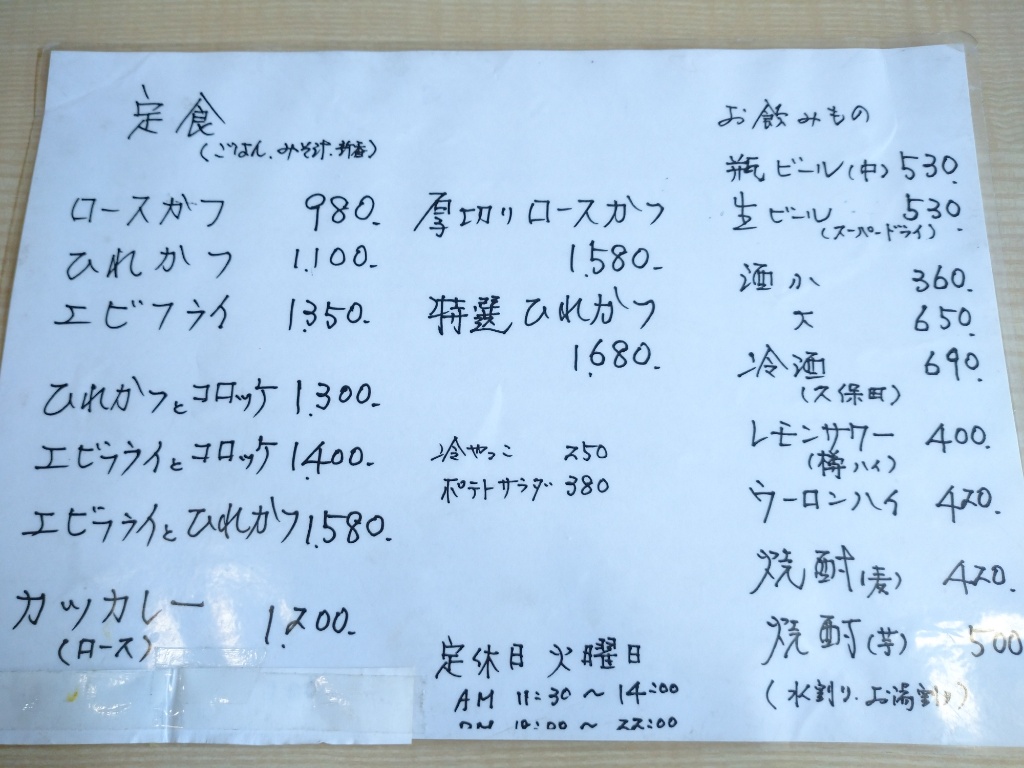 定食
(ごはん、みそ汁、新香)
ロースかつ 980.-
ひれかつ 1.100.-
エビフライ 1.350.-
ひれかつとコロッケ 1.300.-
エビフライとコロッケ 1.400.-
エビフライとひれかつ 1.580.-
カツカレー 1.200.-
(ロース)
厚切りロースかつ
1.580.-
特選ひれかつ
1.680.-
冷やっこ 250
ポテトサラダ 380
定休日 火曜日
AM 11:30 〜 14:00
〜 22:00
お飲みもの
瓶ビール(中) 530.
生ビール 530.
(スーパードライ)
酒 小 360.
大 650.
冷酒 690.
(久保田)
レモンサワー 400.
(樽ハイ)
ウーロンハイ 420.
焼酎(麦) 420.
焼酎(芋) 500
(水割り、お湯割り)